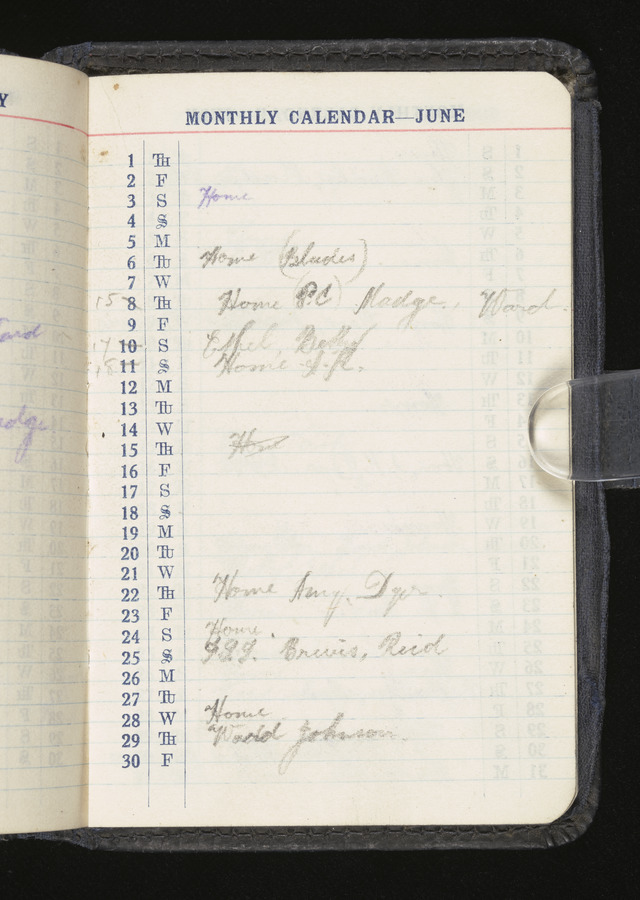 MONTHLY CALENDAR—JUNE
1 TH
2 F
3 S Home
4 S
5 M
6 TU Home (Blades)
7 W
8 TH Home (P.C) Madge, Ward.
9 F
10 S Ethel, Betty
11 S Home
12 M
13 TU
14 W
15 TH Home
16 F
17 S
18 S
19 M
20 TU
21 W
22 TH Home Amy, Dyer.
23 F
24 S Home
25 S Brewis, Reid
26 M
27 TU
28 W Home
29 TH Wadd Johnson.
30 F